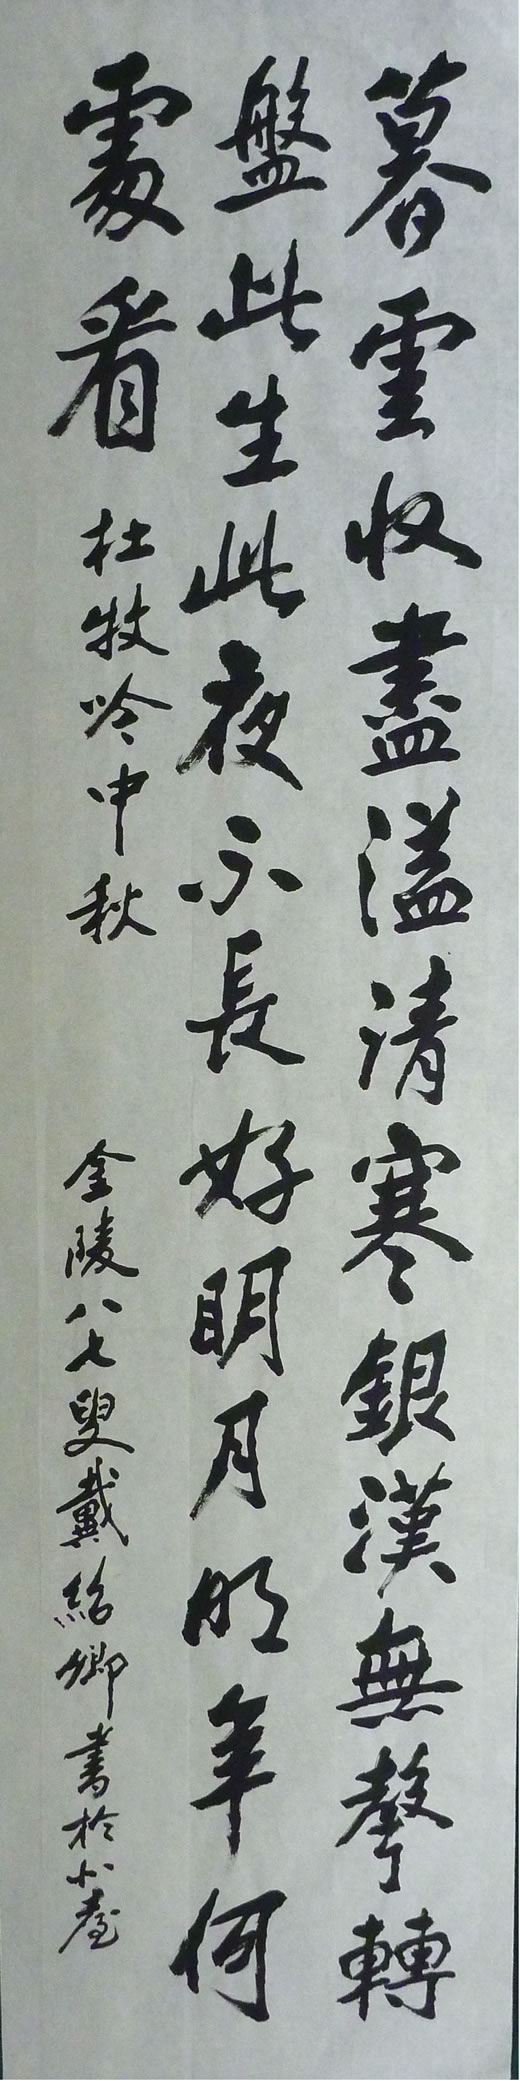 暮雲收盡溢清寒銀漢無聲轉
盤此生此夜不長好明月明年何
處看
杜牧吟中秋
金陵八七叟戴紹卿書於小臺